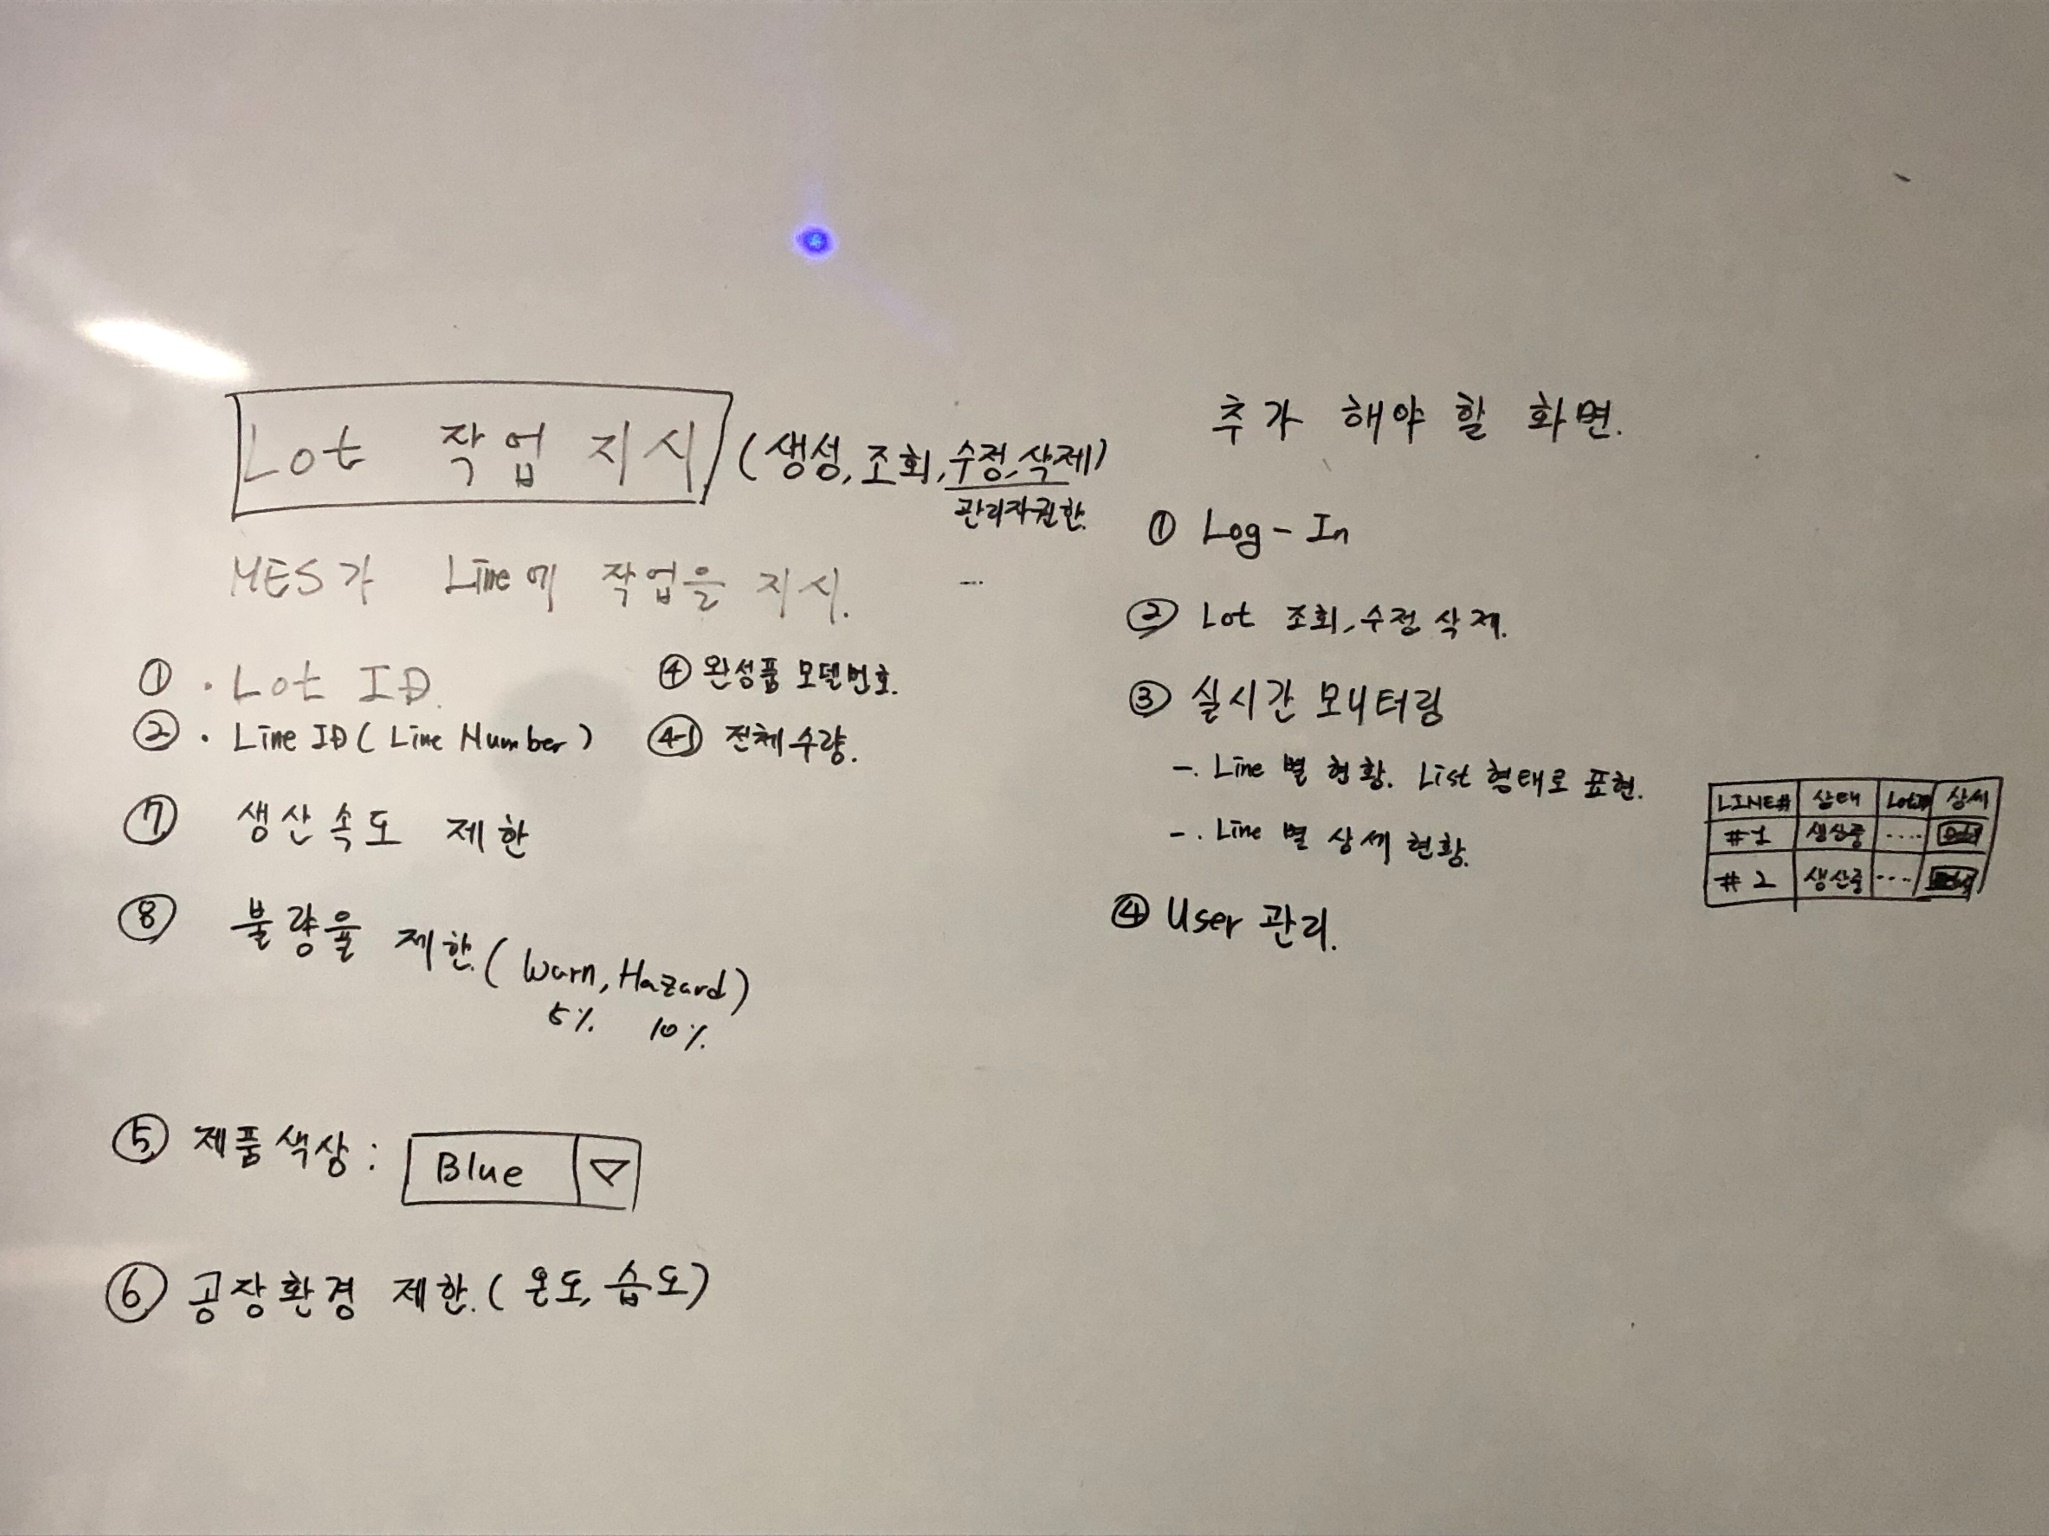 Lot 작업 지시 (생성, 조회, 수정, 삭제)
관리자권한.
MES가 Line에 작업을 지시.
① · Lot ID.
② · Line ID ( Line Number )
④ 완성품 모델번호.
④-1 전체수량.
⑦ 생산속도 제한
⑧ 불량율 제한. ( Warn, Hazard )
5% 10%
⑤ 제품색상 : Blue ▽
⑥ 공장환경 제한. ( 온도, 습도 )
추가 해야 할 화면.
① Log - In
② Lot 조회, 수정, 삭제.
③ 실시간 모니터링
-. Line 별 현황. List 형태로 표현.
-. Line 별 상세 현황.
④ User 관리.
LINE# 상태 Lot# 상세
#1 생산중 ....
#2 생산중 ....